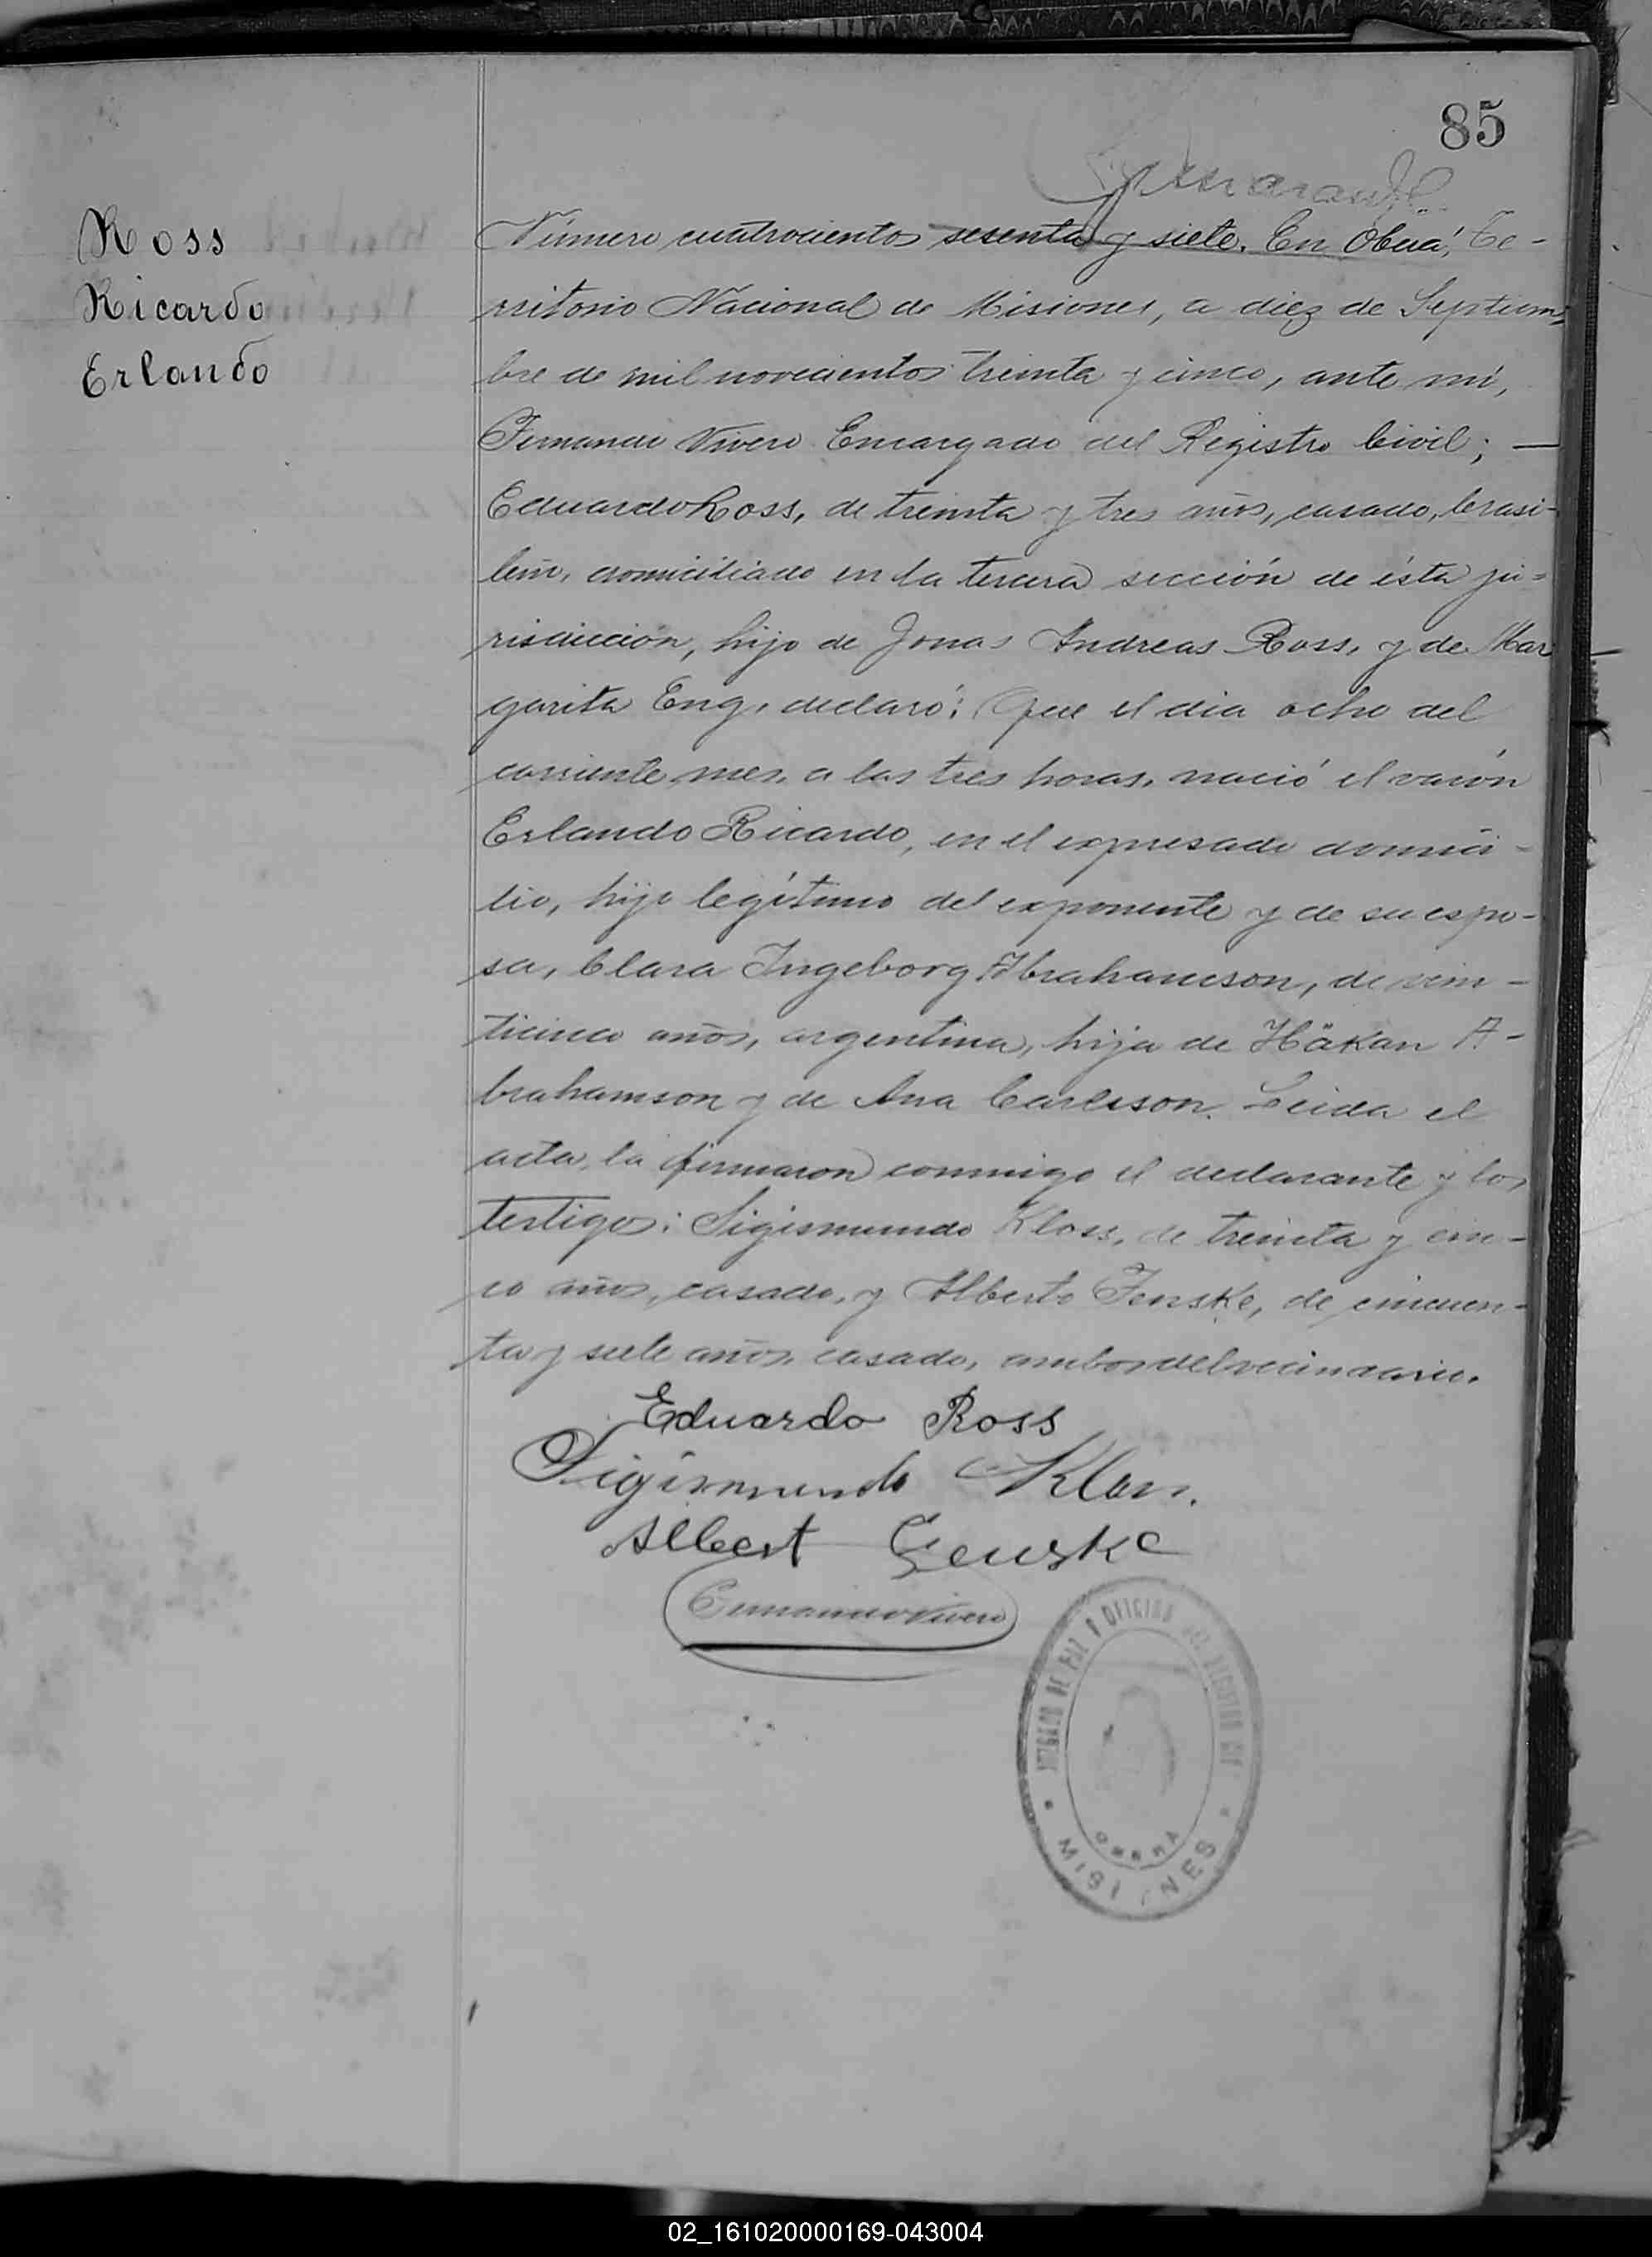 85
Ross
Ricardo
Erlando
Número cuatrocientos sesenta y siete. En Oberá, Te-
rritorio Nacional de Misiones, a diez de Septiem-
bre de mil novecientos treinta y cinco, ante mi,
Fernando Vivero Encargado del Registro Civil; —
Eduardo Ross, de treinta y tres años, casado, brasi-
leño, domiciliado en la tercera sección de ésta ju-
risdicción, hijo de Jonas Andreas Ross, y de Mar
garita Eng, declaró: Que el dia ocho del
corriente mes, a las tres horas, nació el varón
Erlando Ricardo, en el expresado domici-
lio, hijo legítimo del exponente y de su espo-
sa, Clara Ingeborg Abrahamson, de vein-
ticinco años, argentina, hija de Häkan A-
brahamson y de Ana Carlsson. Leida el
acta, la firmaron conmigo el declarante y los
testigos: Sigismundo Kloss, de treinta y cin-
co años, casado, y Alberto Fenske, de cincuen-
ta y siete años, casado, ambos del vecindario.
Eduardo Ross
Sigismundo Kloss.
Albert Fenske
Fernando Vivero
JUZGADO DE PAZ Y OFICINA DEL REGISTRO CIVIL
OBERÁ
* MISIONES *
02_161020000169-043004